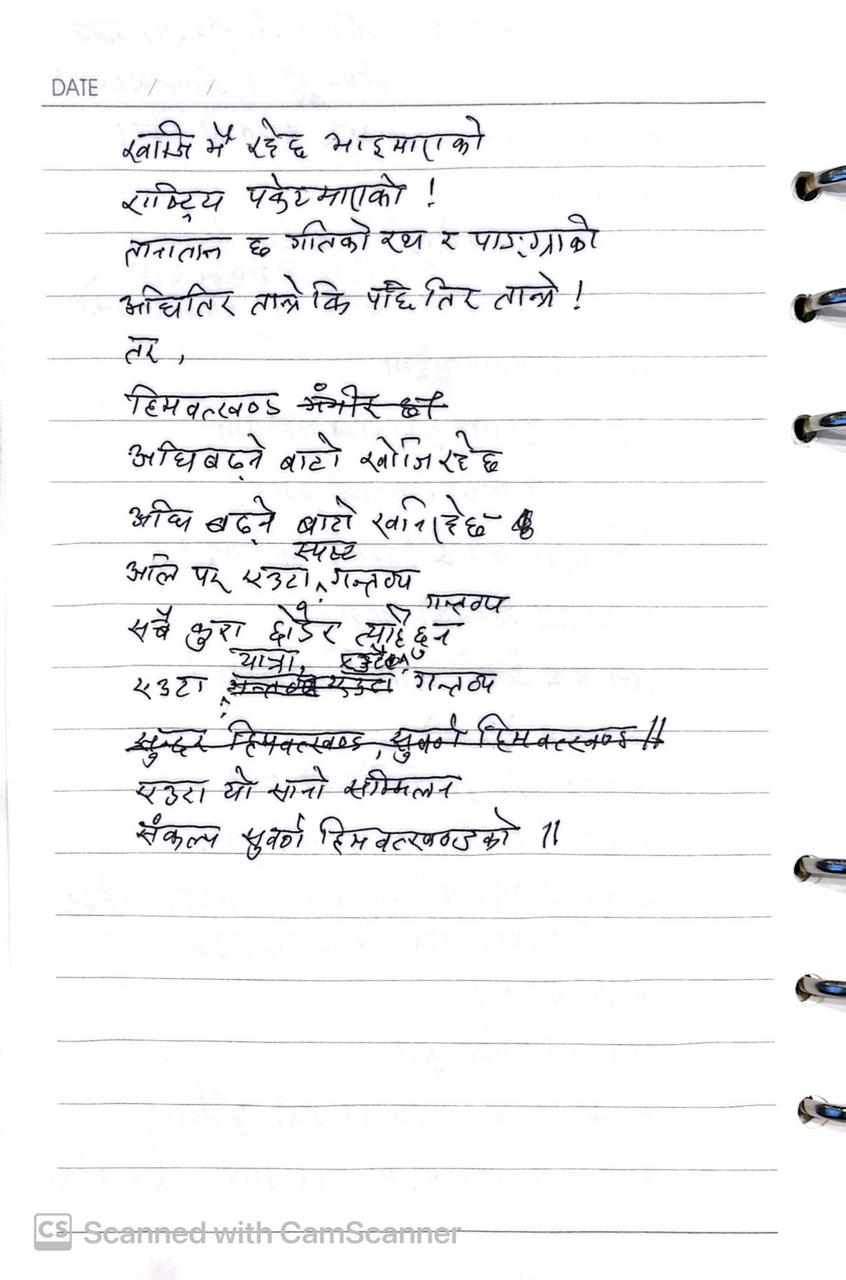 DATE / /
खोजि नै रहेछ भाइमाराको
राष्ट्रिय पकेटमाराको !
तानातान छ गतिको रथ र पाङ्ग्राको
अघितिर तान्ने कि पछि तिर तान्ने !
तर ,
हिमवत्खण्ड गंभीर छ
अघि बढ्ने बाटो खोजि रहेछ
अघि बढ्ने बाटो खनिरहेछ
स्पष्ट
अलि पर एउटा गन्तव्य
गन्तव्य
सबै कुरा छोडेर त्यहि हुन
यात्रा, एउटै
एउटा गन्तव्य एउटा गन्तव्य
सुन्दर हिमवत्खण्ड, सुवर्ण हिमवत्खण्ड ॥
एउटा यो सानो सम्मिलन
संकल्प सुवर्ण हिमवत्खण्डको ॥
CS Scanned with CamScanner